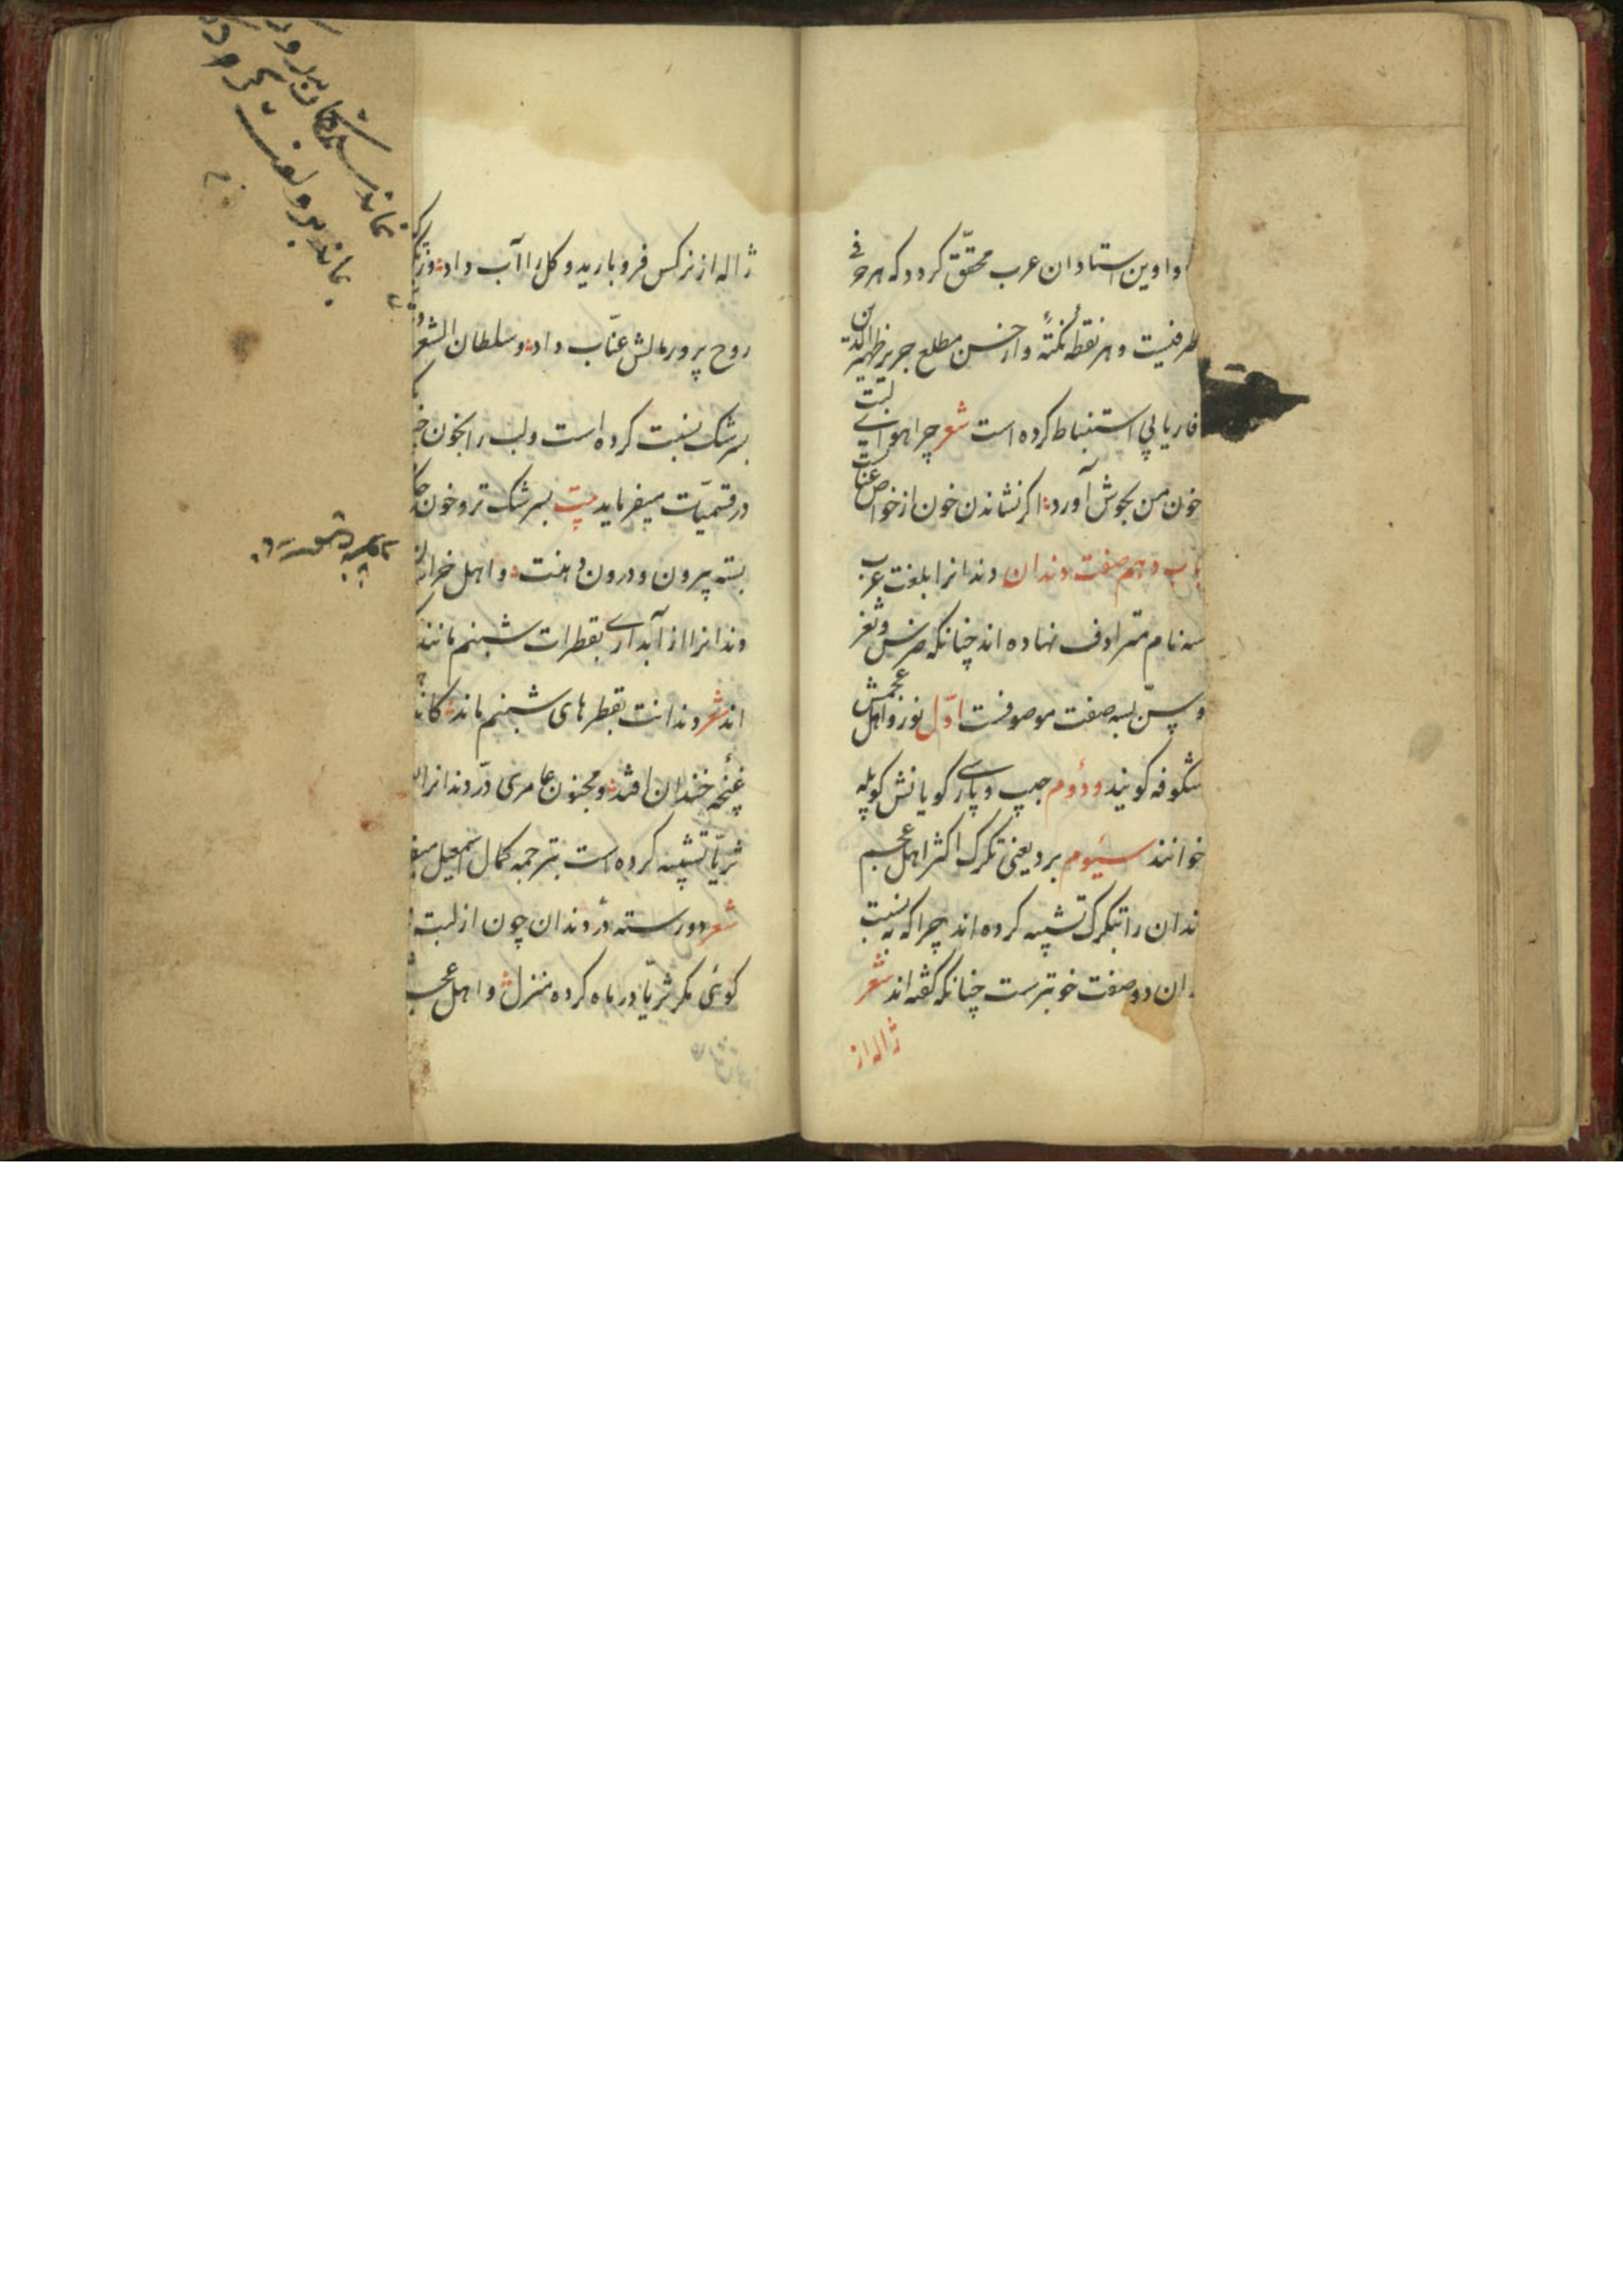 دواوین استادان عرب محقّق کردد که هر حرفی
ظرفیست و هر نقطهٔ نکتهٔ و از حسن مطلع جریر ظهیر الدین
فاریابی استنباط کرده است شعر چرا هوای لبت
خون من بجوش آورد اکر نشاندن خون از خواص عنابست
باب دهم صفت دندان دندانرا بلغت عرب
سه نام مترادف نهاده اند چنانکه ضرس و ثغر
و سنّ بسه صفت موصوفست اوّل نور و اهل عجمش
شکوفه کویند و دوم حبب و پارسی کویانش کوپله
خوانند سیوم برد یعنی تکرک اکثر اهل عجم
دندان را بتکرک تشبیه کرده اند چرا که نسبت
ان دو صفت خوبترست چنانکه کفته اند شعر
ژاله از
ژاله از نرکس فرو بارید و کل را آب داد وز تکرک
روح پرور مالش عنّاب داد و سلطان الشعر
بسرشک نسبت کرده است و لب را بخون
در قسمیّات میفرماید بیت بسرشک تر و خون
بسته بیرون و درون دهنت و اهل خراسان
دندانرا از آبداری بقطرات شبنم مانند
اند شعر دندانت بقطرهای شبنم ماند کاندر
غنچهٔ خندان افتد و مجنون عامری درّ دندانرا
ثریّا تشبیه کرده است بترجمه کمال اسمعیل
شعر دو رسته درّ دندان چون از لبت
کوئی مکر ثریّا در ماه کرده منزل و اهل عجم